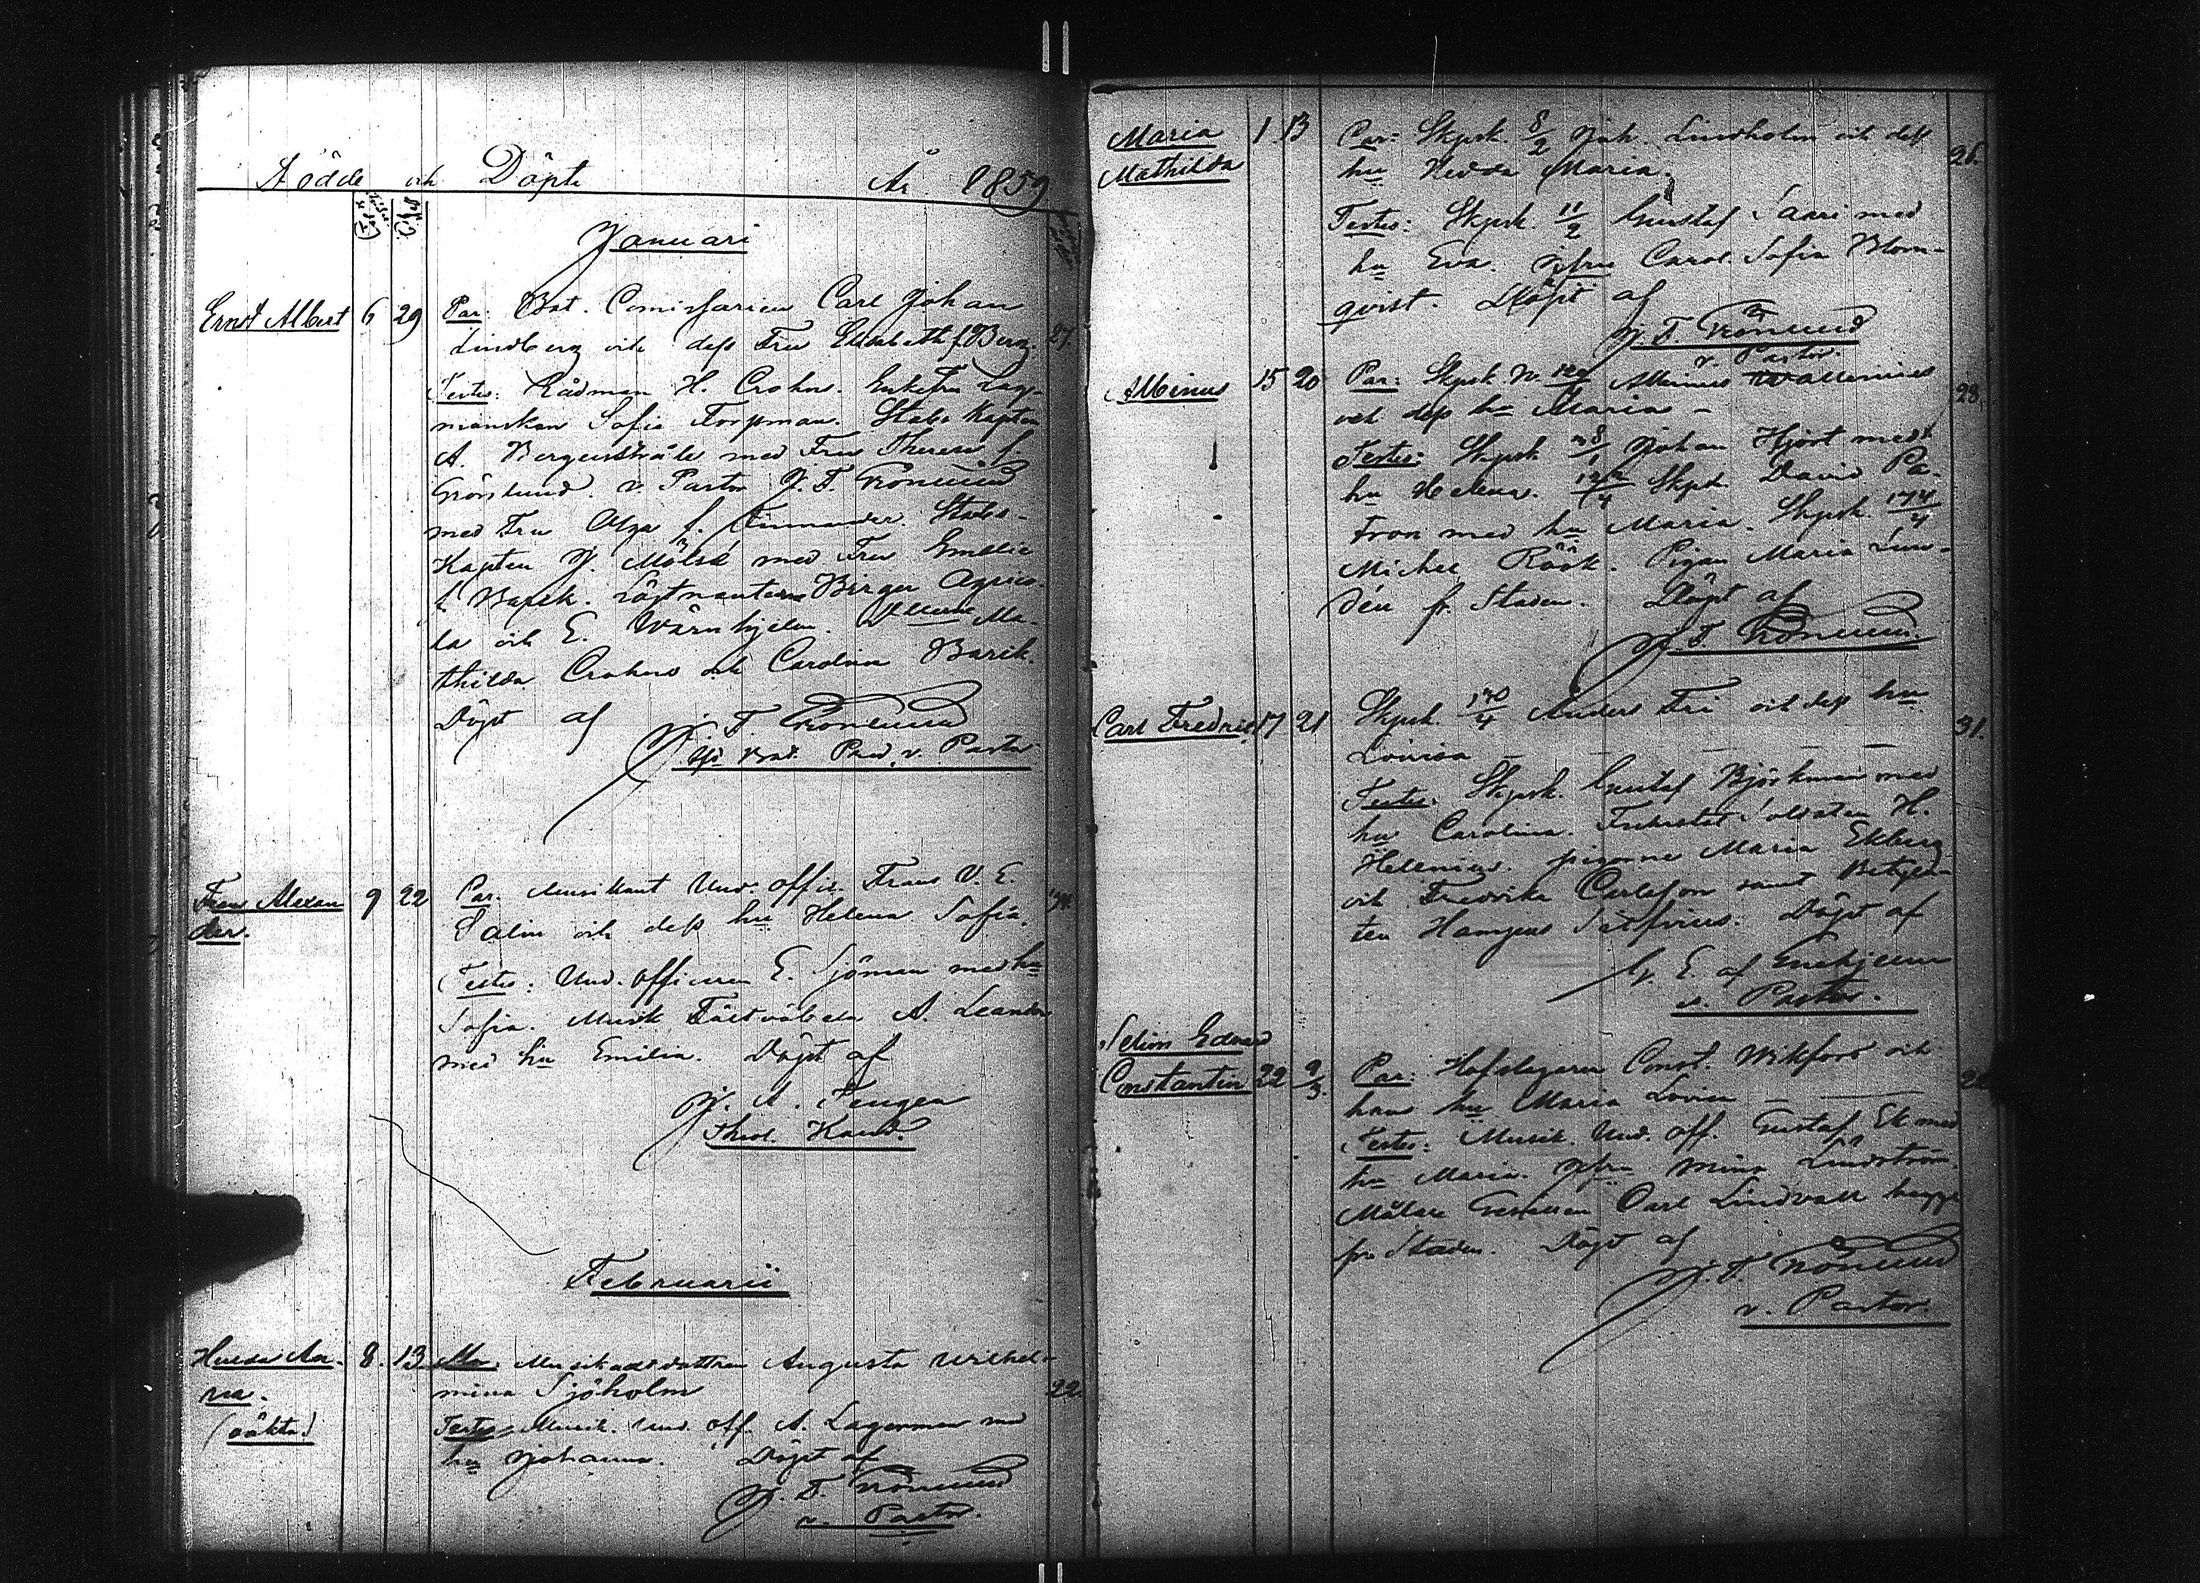 Födde och Döpte År 1859
Januari
Ernst Albert 6 29 Par: Bat. Comissarien Carl Johan
Lindberg och dess Fru Elisabeth f. Berg. 27.
Testes: Rådman H. Crohns. Enkefru Lag-
manskan Sofia Forpman. Stabs Kapten
A. Bergenstråle med Fru Therese f.
Grönlund. v. Pastor J. T. Grönlund
med Fru Olga f. Finnander. Stabs-
Kapten J. Mölsä med Fru Emelie
f. Löjtnanterne Birger Agrico-
la och E. Wärnhjelm. Ma-
thilda Crohns och Carolina
Döpt af J. T. Grönlund
v. Pastor
Frans Alexan- 9 22 Par. Musikant Und. offic. Frans V. E.
der. Salin och dess hu Helena Sofia.
Testes: Und. officeren E. Sjöman med hu
Sofia. Musik Fältväbeln A. Leander
med hu Emilia. Döpt af
J. A.
Theol. Kand.
Februarii
Hulda An- 8. 13 Mo: Augusta Wilhel-
na. mina Sjöholm 22.
(oäkta) Testes: Musik. Und. Off. A. Lagerman med
hu Johanna. Döpt af
J. T. Grönlund
v. Pastor.
Maria 1 13 Par: Skpsk. 8/2 Joh. Lindholm och dess 26.
Mathilda hu Hedda Maria.
Testes: Skpsk. 11/2 Gustaf Saari med
hu Eva. Jfru Carol. Sofia Blom-
qvist. Döpt af
J. T. Grönlund
v. Pastor.
Albinus 15 20 Par: Skpsk. N. Albinus Wallenius 28.
och dess hu Maria –
Testes: Skpsk Johan Hjort med
hu Helena. Skpsk. David Pa-
tron med hu Maria. Skpsk. 174/4
Michel Röök. Pigan Maria Lin-
dén fr. Staden. Döpt af
J. T. Grönlund.
Carl Fredric 17 21 Skpsk. Anders Fri och dess hu 31.
Lovisa
Testes: Skpsk. Gustaf Björkman med
hu Carolina. Soldaten H.
Hellenius. pigorne Maria Ekberg
och Fredrika Carlsson samt Betjen-
ten Döpt af
G. E. af Enehjelm
v. Pastor.
Selim Edvard
Constantin 22 2/3. Par: Hofslagaren Const. Wikfors och
hans hu Maria Lovisa
Testes: Musik. Und. off. Gustaf Ek med
hu Maria. Jfru Mina Lindström.
Målare Gesällen Carl Lindvall begge
fr. Staden. Döpt af
J. T. Grönlund
v. Pastor.